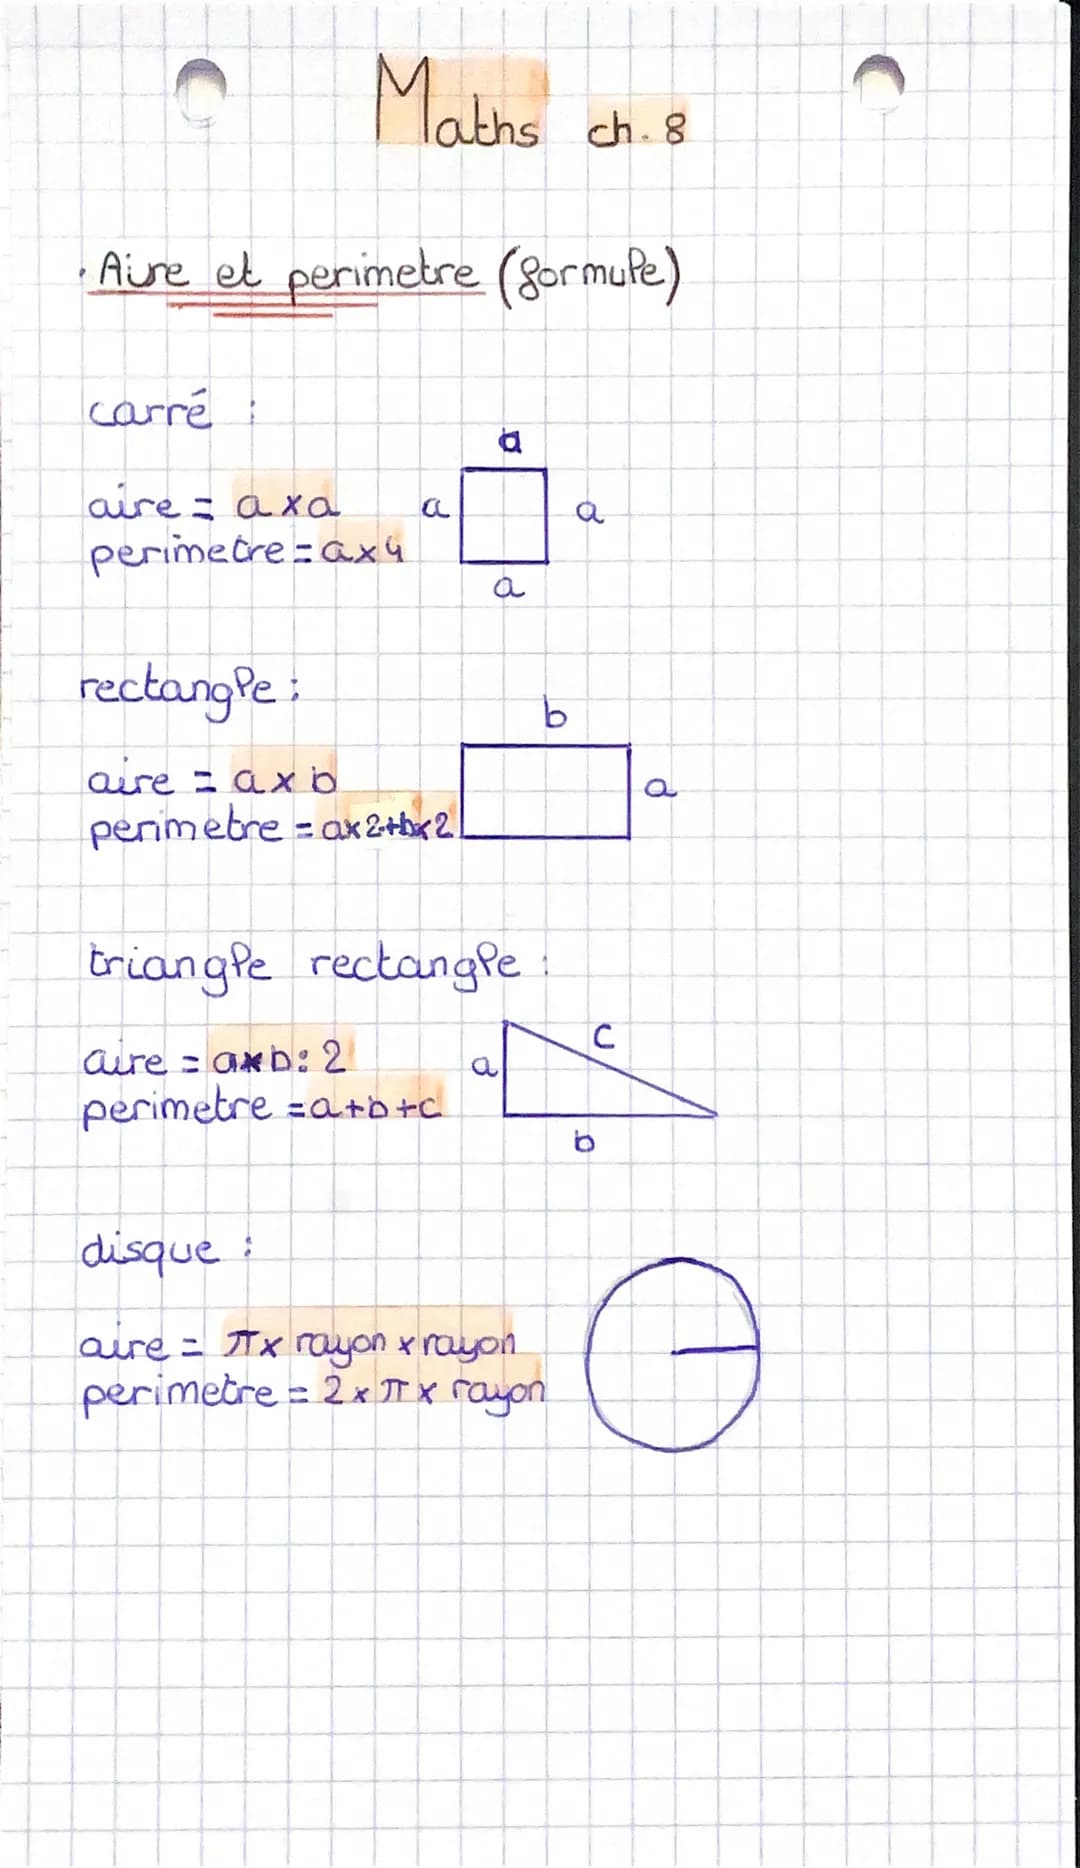 Maths ch. 8
· Aire et perimetre (formule)
carré :
a
aire = a x a
a
a
perimetre = a x 4
a
rectangle :
b
aire = a x b
a
perimetre = a x 2 + b x 2
triangle rectangle :
c
aire = a x b : 2
a
perimetre = a + b + c
b
disque :
aire = π x rayon x rayon
perimetre = 2 x π x rayon